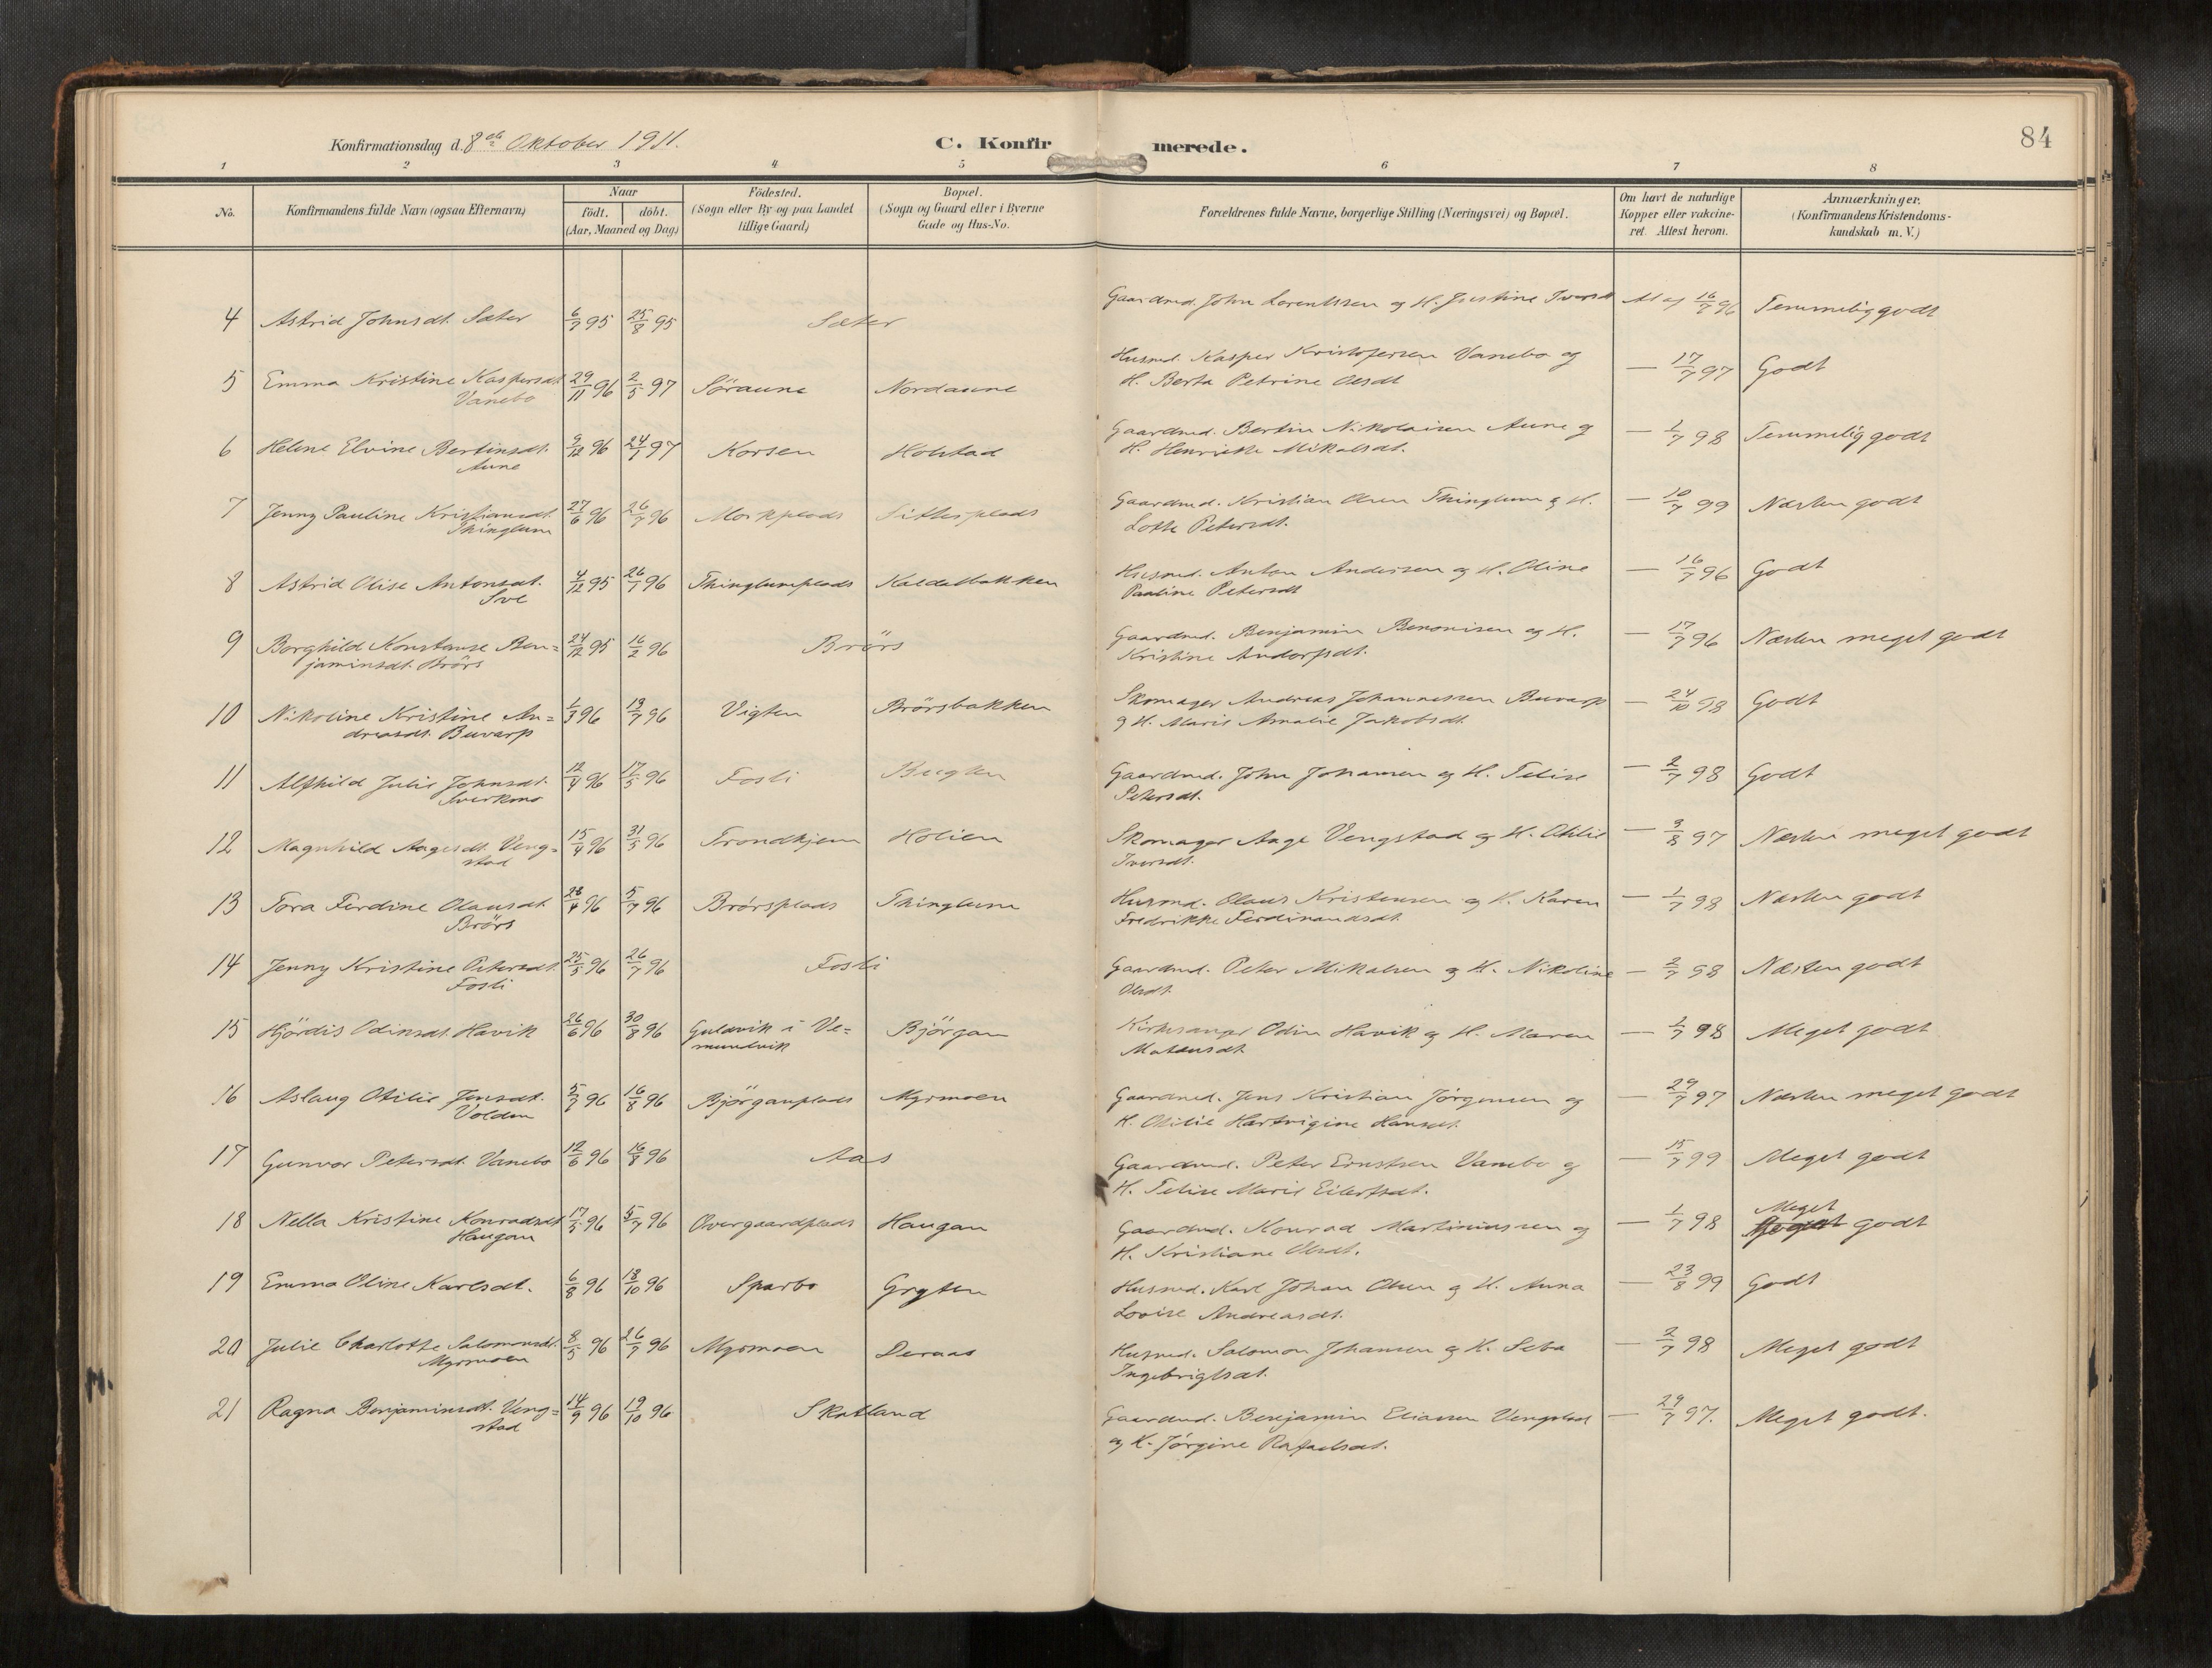 84
Konfirmationsdag d. 8de Oktober 1911.
C. Konfirmerede.
1 2 3 4 5 6 7 8
No.
Konfirmandens fulde Navn (ogsaa Efternavn)
Naar
födt. döbt.
(Aar, Maaned og Dag)
Födested.
(Sogn eller By og paa Landet
tillige Gaard)
Bopæl.
(Sogn og Gaard eller i Byerne
Gade og Hus-No.
Forældrenes fulde Navne, borgerlige Stilling (Næringsvei) og Bopæl.
Om havt de naturlige
Kopper eller vakcine-
ret. Attest herom.
Anmærkninger.
(Konfirmandens Kristendoms-
kundskab m. V.)
4 Astrid Johnsdt. Sæter 6/7 95 25/8 95 Sæter Gaardmd. John Lorentssen og H. Justine Iversdt 16/7 96 Temmelig godt
5 Emma Kristine Kaspersdt. 29/11 96 2/5 97 Söraune Nordaune Husmd. Kasper Kristofersen Vanebo og — 17/7 97 Godt
Vanebo H. Berta Petrine Olsdt
6 Helene Elvine Bertinsdt. 9/12 96 24/1 97 Korsen Holstad Gaardmd. Bertin Nikolaisen Aune og — 1/7 98 Temmelig godt
Aune H. Henriette Mikalsdt.
7 Jenny Pauline Kristiansdt. 27/6 96 26/7 96 Morkplads Gaardmd. Kristian Olsen Thinglum og H. — 10/7 99 Næsten godt
Thinglum Lotte Petersdt.
8 Astrid Olise Antonsdt. 4/12 95 26/1 96 Thinglumplads Kaldalbakken Husmd. Anton Andersen og H. Oline — 16/7 96 Godt
Sve Pauline Petersdt
9 Borghild Konstanse Ben= 24/12 95 16/2 96 Brörs Gaardmd. Benjamin Benonisen og H. — 17/7 96 Næsten meget godt
jaminsdt. Brörs Kristine
10 Nikoline Kristine An= 1/3 96 13/7 96 Vigten Brörsbakken Skomager Andreas Johannessen Buvarp — 24/10 98 Godt
dreasdt. Buvarp og H. Marie Amalie Jakobsdt.
11 Alfhild Julie Johnsdt. 12/4 96 17/5 96 Fosli Gaardmd. John Johansen og H. Felise — 2/7 98 Godt
Petersdt.
12 Magnhild Aagesdt. Veng= 15/4 96 31/5 96 Trondhjem Holien Skomager Aage Vengstad og H. Otilie — 3/8 97 Næsten meget godt
stad Iversdt.
13 Tora Ferdine Olausdt. 28/4 96 5/7 96 Brörsplads Thinglum Husmd. Olaus Kristensen og H. Karen — 1/7 98 Næsten godt
Brörs Fredrikke Ferdinandsdt.
14 Jenny Kristine Petersdt. 25/5 96 26/7 96 Fosli Gaardmd. Peter Mikalsen og H. Nikoline — 2/7 98 Næsten godt
Fosli Olsdt.
15 Hjördis Odinsdt. Havik 26/6 96 30/8 96 Guldvik i Ve= Björgan Kirkesanger Odin Havik og H. Maren — 1/7 98 Meget godt
mundvik
16 Aslaug Otilie Jensdt. 5/7 96 16/8 96 Björganplads Myrmoen Gaardmd. Jens Kristian Jörgensen og — 29/7 97 Næsten meget godt
Volden H. Otilie Hartvigine Hansdt.
17 Gunvor Petersdt. Vanebo 12/6 96 16/8 96 Aas Gaardmd. Peter Ernstsen Vanebo og — 15/7 99 Meget godt
H. Felise Marie Eilertsdt.
18 Nella Kristine Konradsdt. 17/5 96 5/7 96 Overgaardplads Haugan Gaardmd. Konrad Martiniussen og — 1/7 98 Meget godt
Haugan H. Kristiane Olsdt.
19 Emma Oline Karlsdt. 6/8 96 18/10 96 Sparbo Gryten Husmd. Karl Johan Olsen og H. Anna — 23/8 99 Godt
Lovise Andreasdt.
20 Julie Charlotte Salomonsdt. 8/5 96 26/7 96 Myrmoen Deraas Husmd. Salomon Johansen og H. Seba — 2/7 98 Meget godt
Myrmoen Ingebrigtsdt.
21 Ragna Benjaminsdt. Veng= 14/9 96 19/10 96 Skatland Gaardmd. Benjamin Eliassen Vengstad — 29/7 97. Meget godt.
stad og H. Jörgine Rafaelsdt.